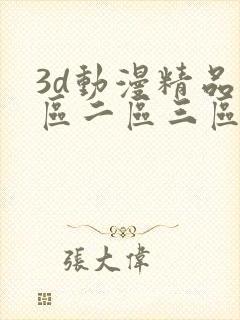 3d動漫精品
區二區三區
張大偉